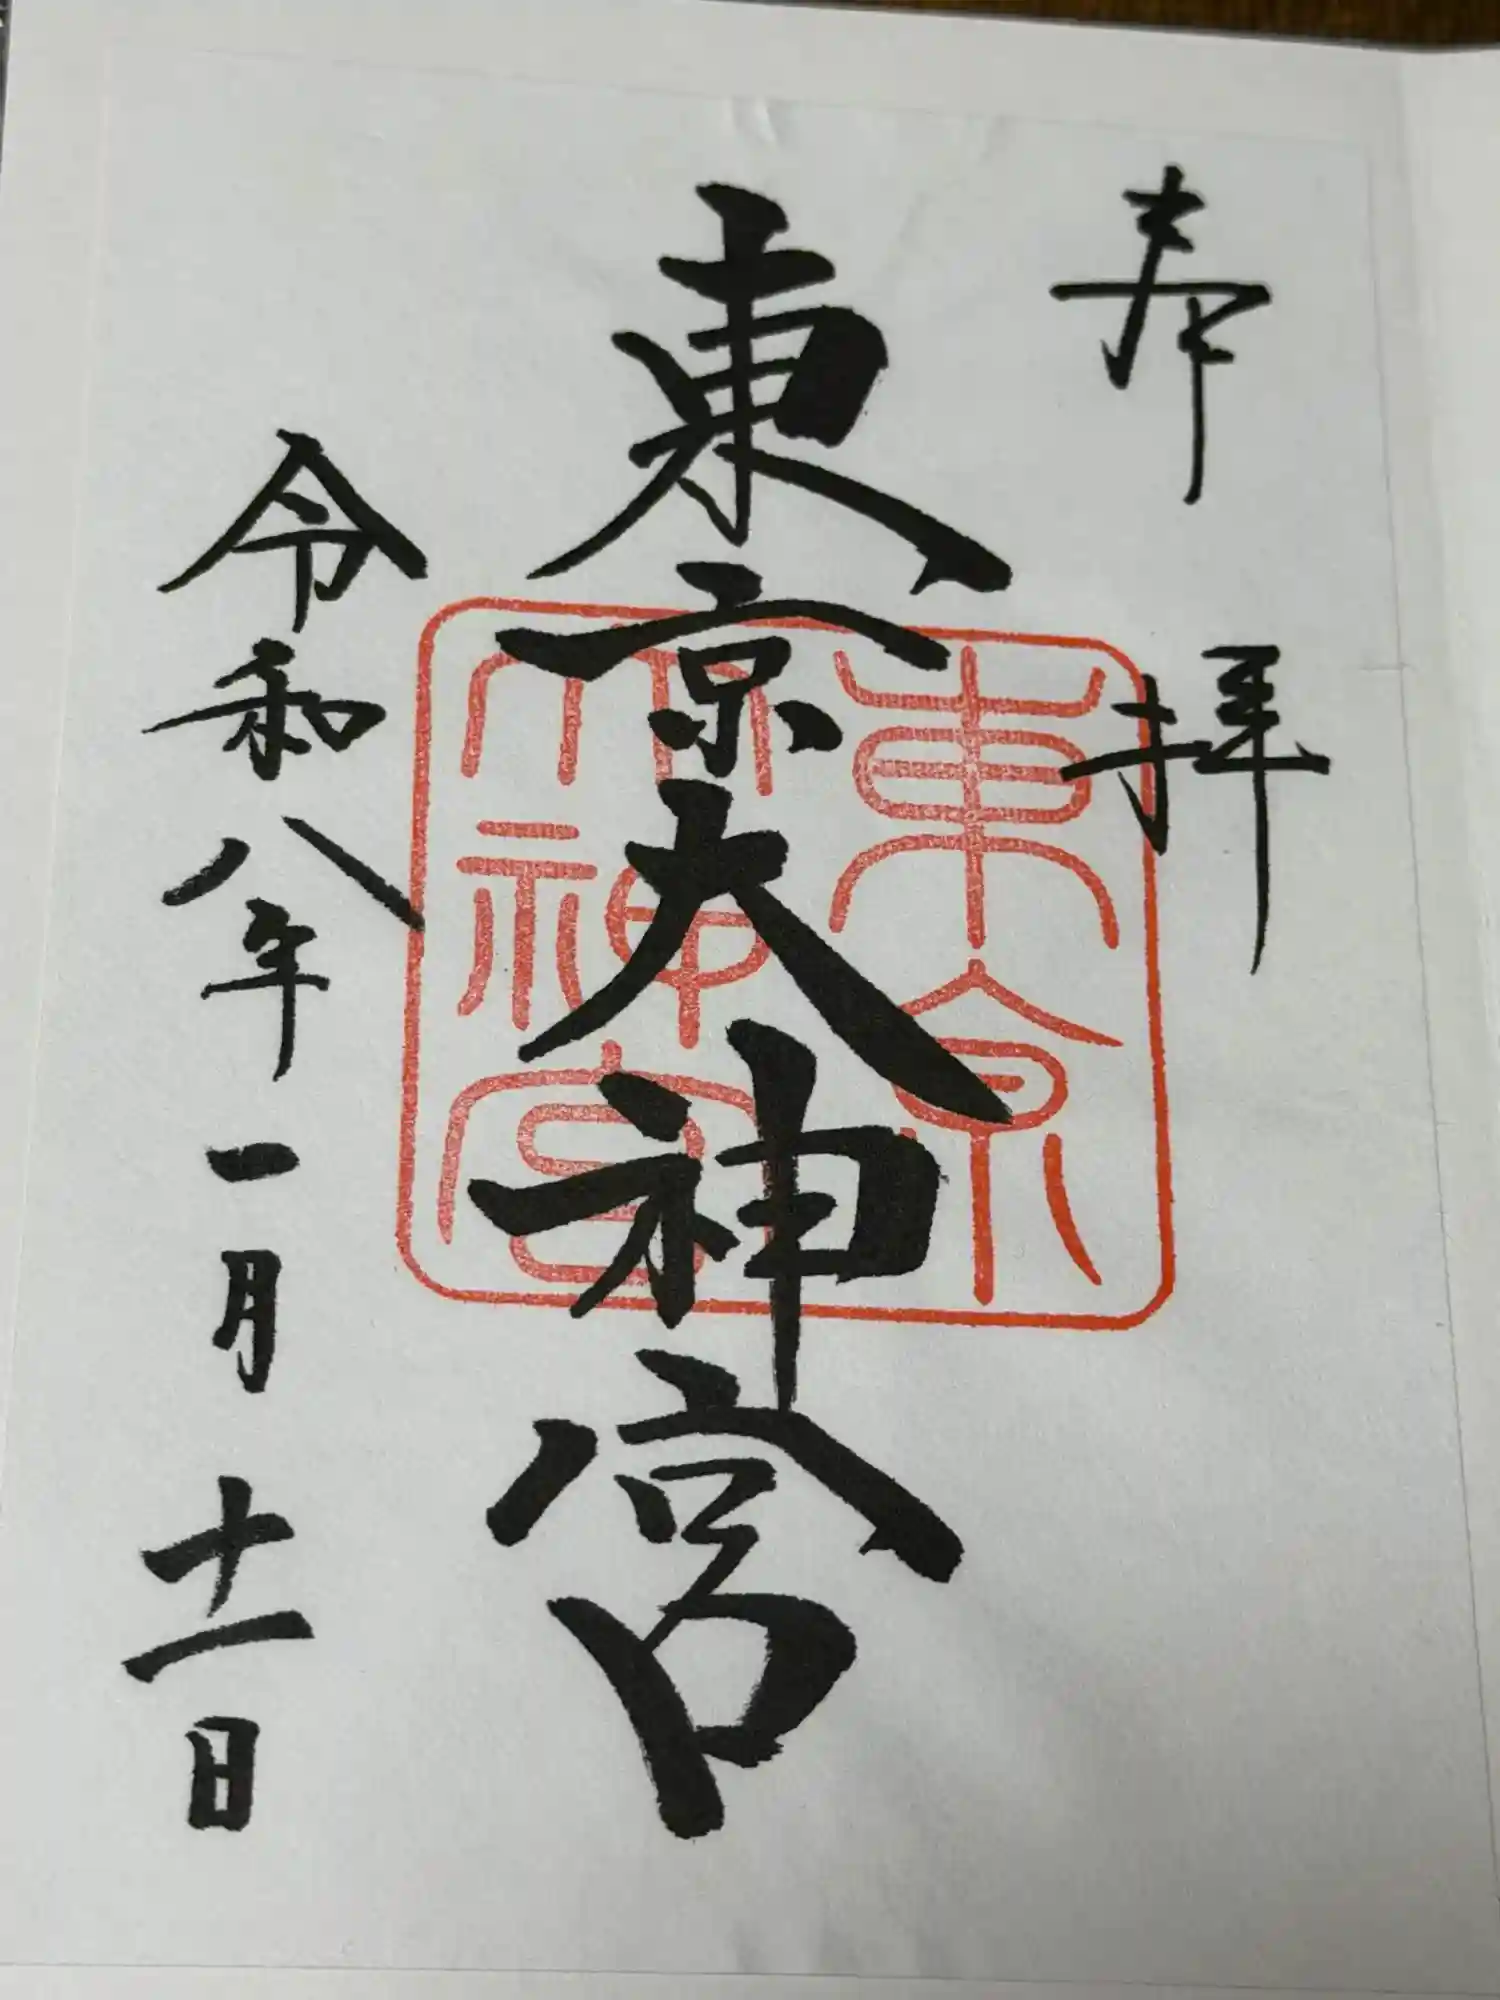 奉拝
東京大神宮
令和八年一月十一日
東京
大神宮